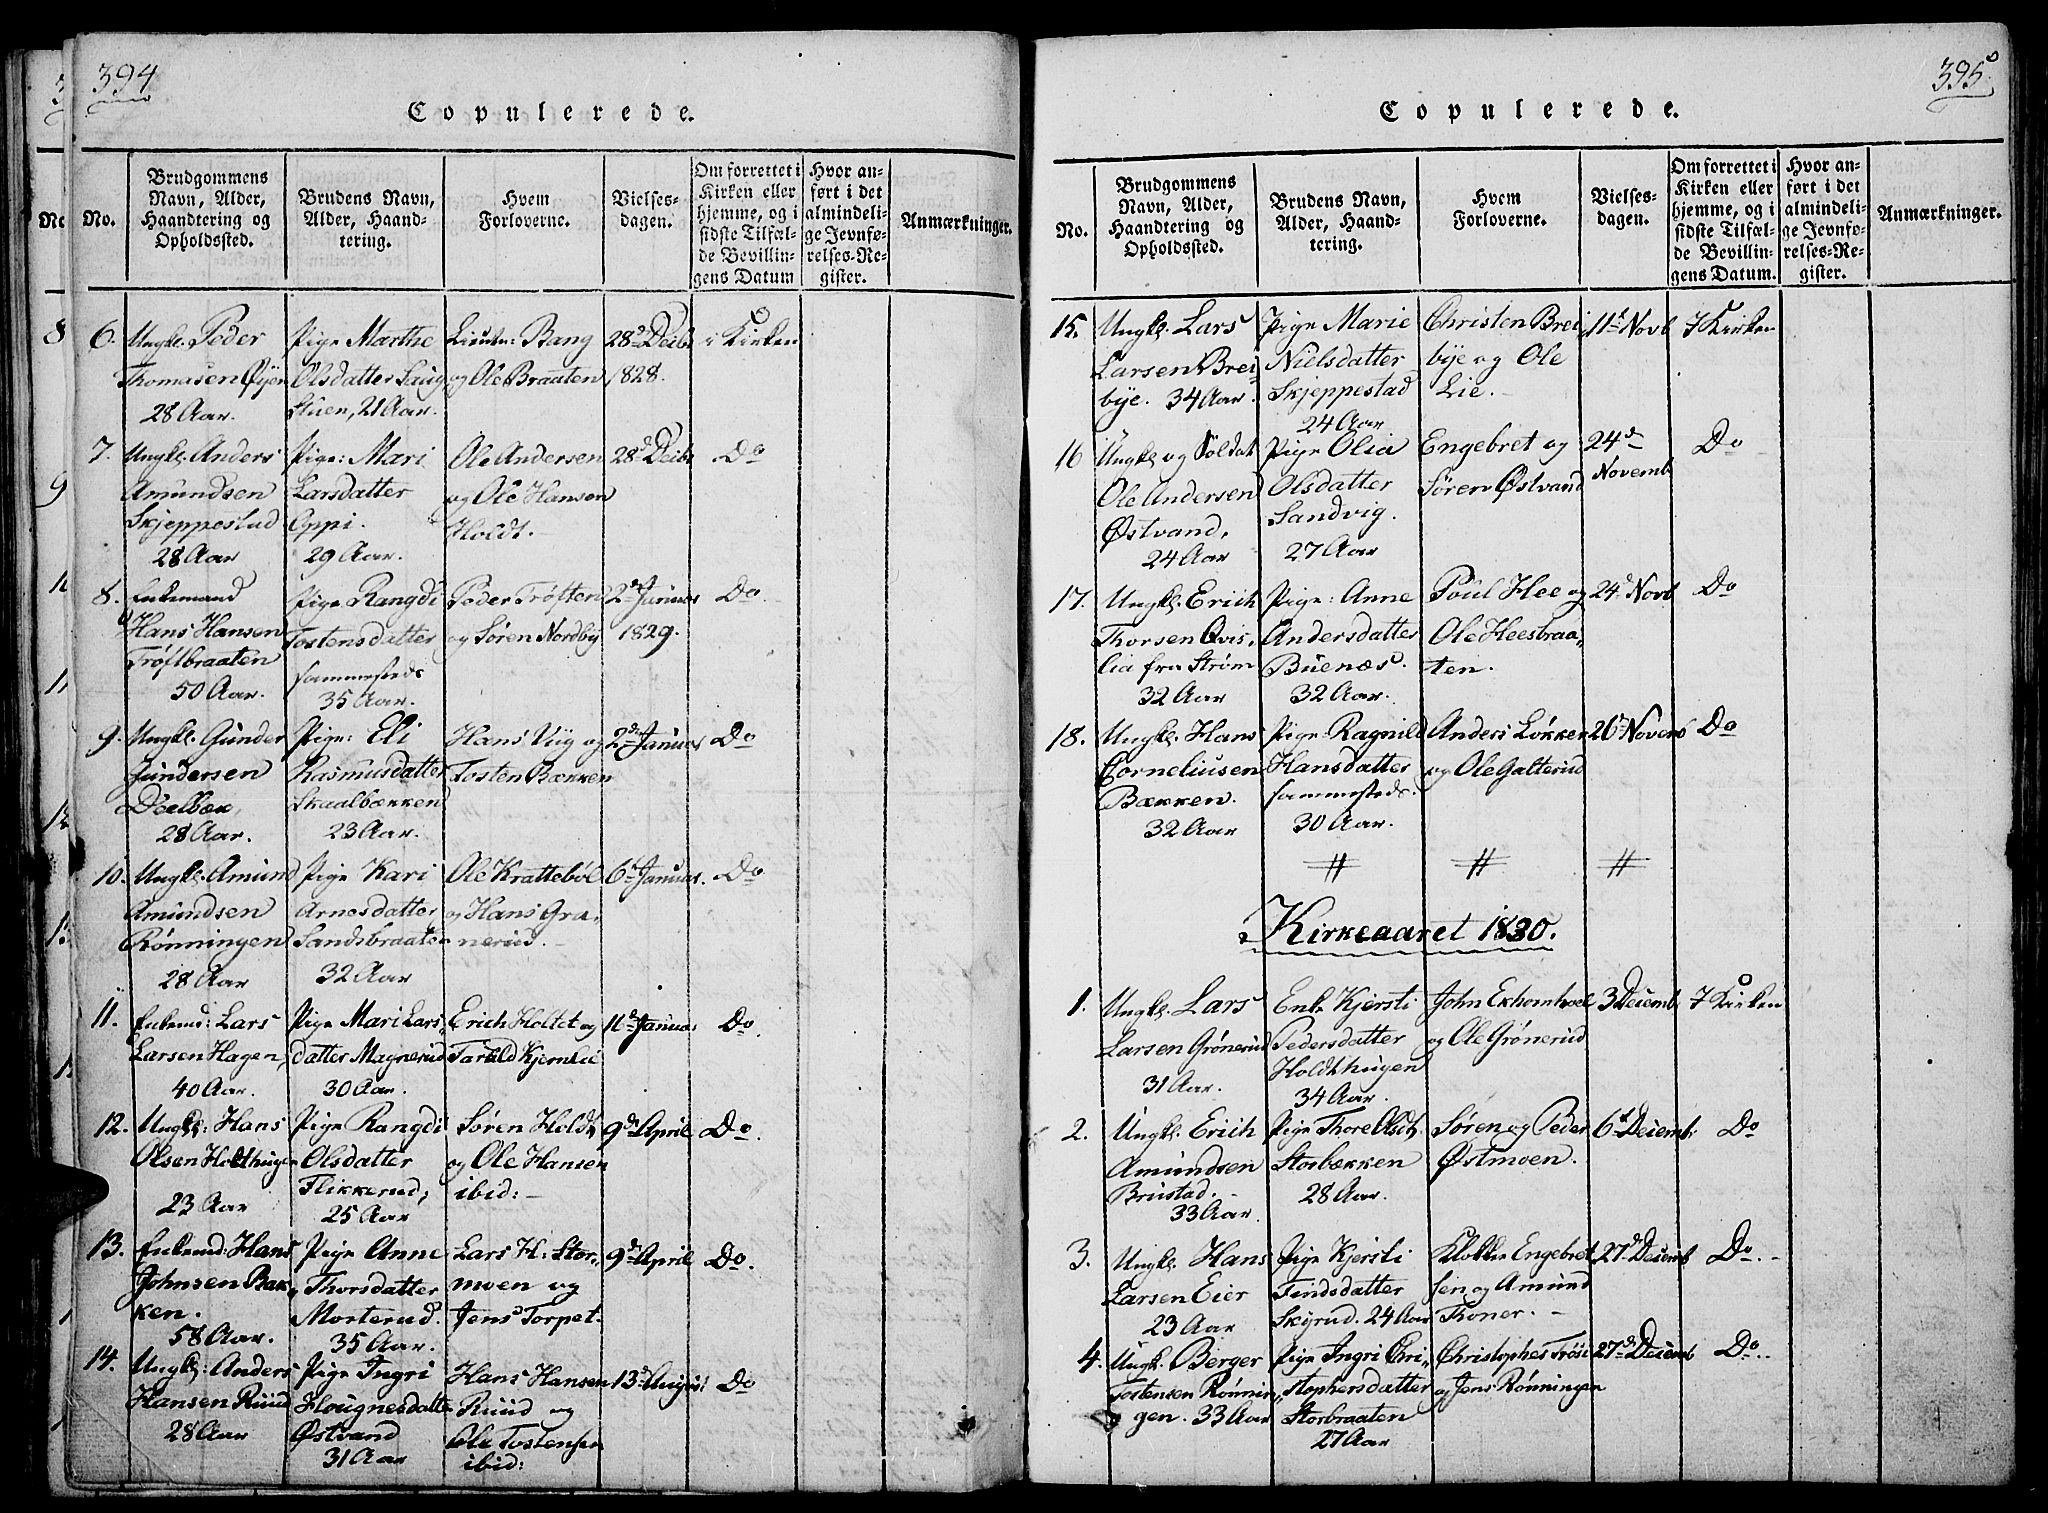 394
Copulerede.
No.
Brudgommens
Navn, Alder,
Haandtering og
Opholdssted.
Brudens Navn,
Alder, Haand-
tering.
Hvem
Forloverne.
Vielses-
dagen.
Om forrettet i
Kirken eller
hjemme, og i
sidste Tilfæl-
de Bevillin-
gens Datum
Hvor an-
ført i det
almindeli-
ge Jevnfø-
relses-Re-
gister.
Anmærkninger.
6.
Ungkl. Peder
Thomasen Øyen
28 Aar.
Pige Marthe
Olsdatter Saug
stuen, 21 Aar.
Lieutn: Bang
og Ole Braaten
28d Decbr
1828.
i Kirken
7.
Ungkl. Anders
Amundsen
Skjeppestad
28 Aar
Pige: Mari
Larsdatter
Oppi.
29 Aar.
Ole Andersen
og Ole Hansen
Holdt.
28d Decbr
Do
8.
Enkemand
Hans Hansen
Trøftbraaten
50 Aar.
Pige Rangdi
Tostensdatter
sammesteds
35 Aar.
Peder Trøften
og Søren Nordby
2d Januar
1829.
Do
9.
Ungkl. Gunder
Gundersen
Deelbæk,
28 Aar.
Pige: Eli
Rasmusdatter
Skaalbækken
23 Aar.
Hans Viig og
Tosten Bækken
2d Januar
Do
10.
Ungkl. Amund
Amundsen
Rønningen
28 Aar
Pige Kari
Arnesdatter
Sandsbraaten
32 Aar
Ole Krattebøl
og Hans Gra-
nerud.
6d Januar.
Do
11.
Enkemd: Lars
Larsen Hagen,
40 Aar.
Pige Mari Lars
datter Magnerud
30 Aar.
Erich Holtet og
Tarald Kjernlie
11d Januar
Do
12.
Ungkl: Hans
Olsen Holthugen
23 Aar
Pige Rangdi
Olsdatter
Flikkerud,
25 Aar
Søren Holdt
og Ole Hansen
ibid:
9d April
Do.
13.
Enkemd: Hans
Johnsen Bæk
ken.
58 Aar.
Pige Anne
Thorsdatter
Morterud.
35 Aar.
Lars H: Stor,
moen og
Jens Torpet.
9d April
Do.
14.
Ungkl: Anders
Hansen Ruud
28 Aar
Pige Ingri
Hougnesdatter
Østvand
31 Aar
Hans Hansen
Ruud og
Ole Tostensen
ibid:
13d August
Do
395
Copulerede.
No.
Brudgommens
Navn, Alder,
Haandtering og
Opholdssted.
Brudens Navn,
Alder, Haand-
tering.
Hvem
Forloverne.
Vielses-
dagen.
Om forrettet i
Kirken eller
hjemme, og i
sidste Tilfæl-
de Bevillin-
gens Datum.
Hvor an-
ført i det
almindeli-
ge Jevnfø-
relses-Re-
gister.
Anmærkninger.
15.
Ungkl. Lars
Larsen Brei
bye. 34 Aar.
Pige Marie
Nielsdatter
Skjeppestad
24 Aar
Christen Brei
bye og Ole
Lie.
11t Novb
I Kirken
16
Ungkl og Soldat
Ole Andersen
Østvand,
24 Aar
Pige Olia
Olsdatter
Sandvig.
27 Aar
Engebret og
Søren Østvand
24d
Novemb
Do
17.
Ungkl. Erich
Thorsen Qvis,
lia fra Strøm
32 Aar
Pige: Anne
Andersdatter
Buenæs.
32 Aar.
Poul Hee og
Ole Heesbraa,
ten.
24d Novb
Do
18.
Ungkl. Hans
Corneliusen
Bækken.
32 Aar
Pige Ragnild
Hansdatter
sammesteds.
30 Aar.
Anders Løkken
og Ole Galterud
26d Novemb
Do
# # #
Kirkeaaret 1830.
1.
Ungkl. Lars
Larsen Grønerud
31 Aar.
Enke Kjersti
Pedersdatter
Holdthugen
34 Aar.
John Ekhornhoel
og Ole Grønerud
3 Decemb
I Kirken
2.
Ungkl. Erich
Amundsen
Brustad.
33 Aar
Pige Thore Olsdt.
Storbækken
28 Aar.
Søren og Peder
Østmoen.
6d Decemb.
Do
3.
Ungkl. Hans
Larsen Eier
23 Aar
Pige Kjersti
Findsdatter
Skyrud. 24 Aar
Klokker Engebret
sen og Amund
Troner.
27d Decemb
Do.
4.
Ungk. Berger
Tostensen Rønnin,
gen. 33 Aar
Pige Ingri Chri,
stophersdatter
Storbraaten
27 Aar
Christopher Trøsi
og Jens Rønningen
27d Decemb
Do.